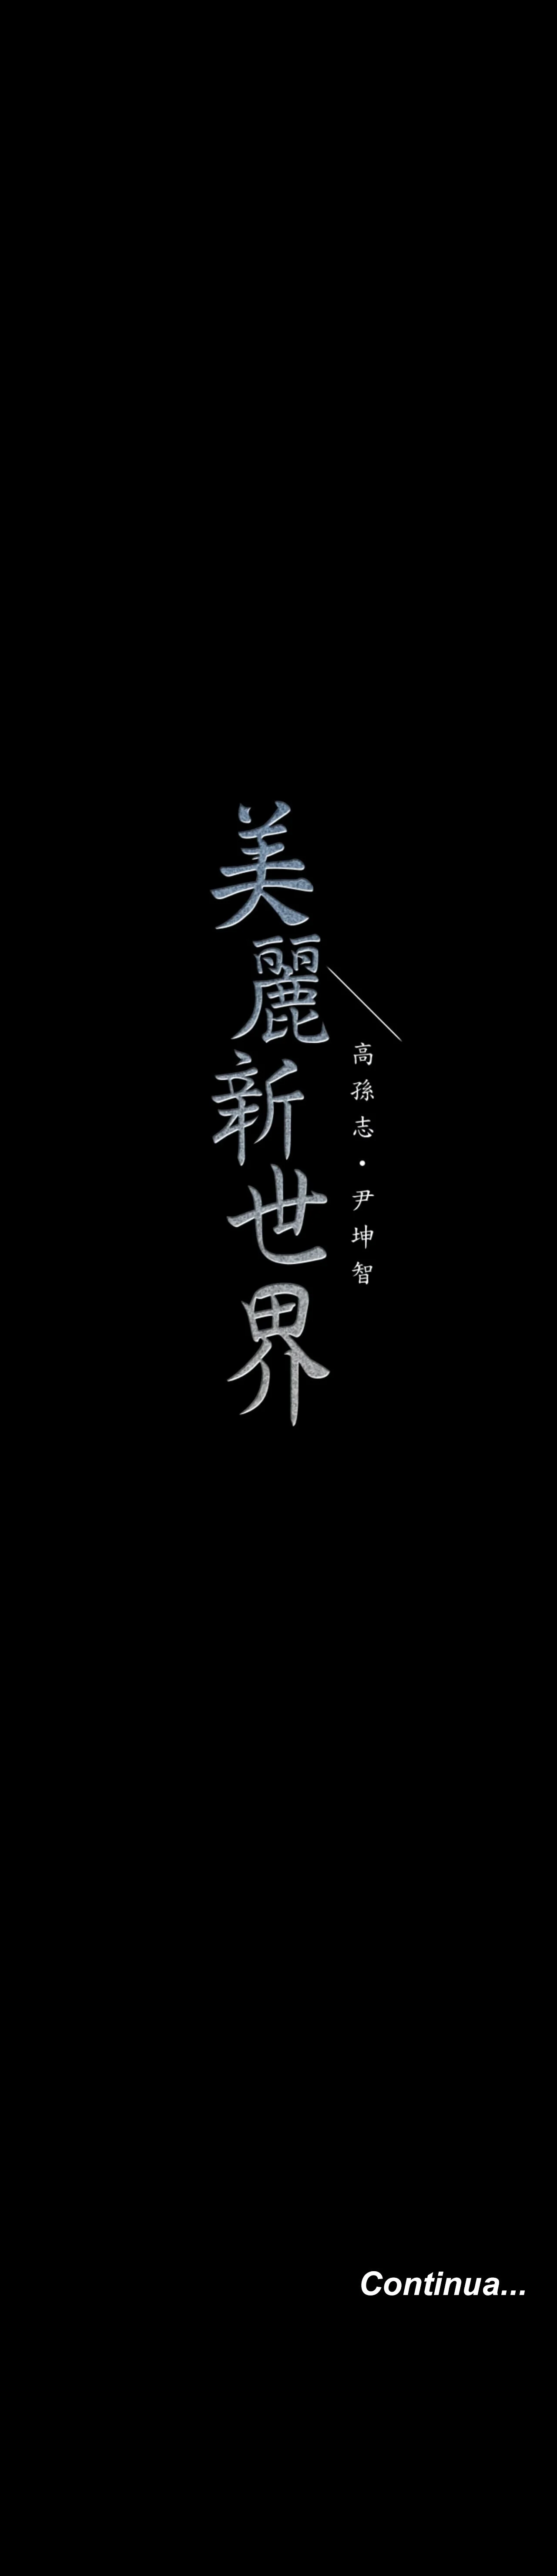 美麗新世界
高孫志・尹坤智
Continua...